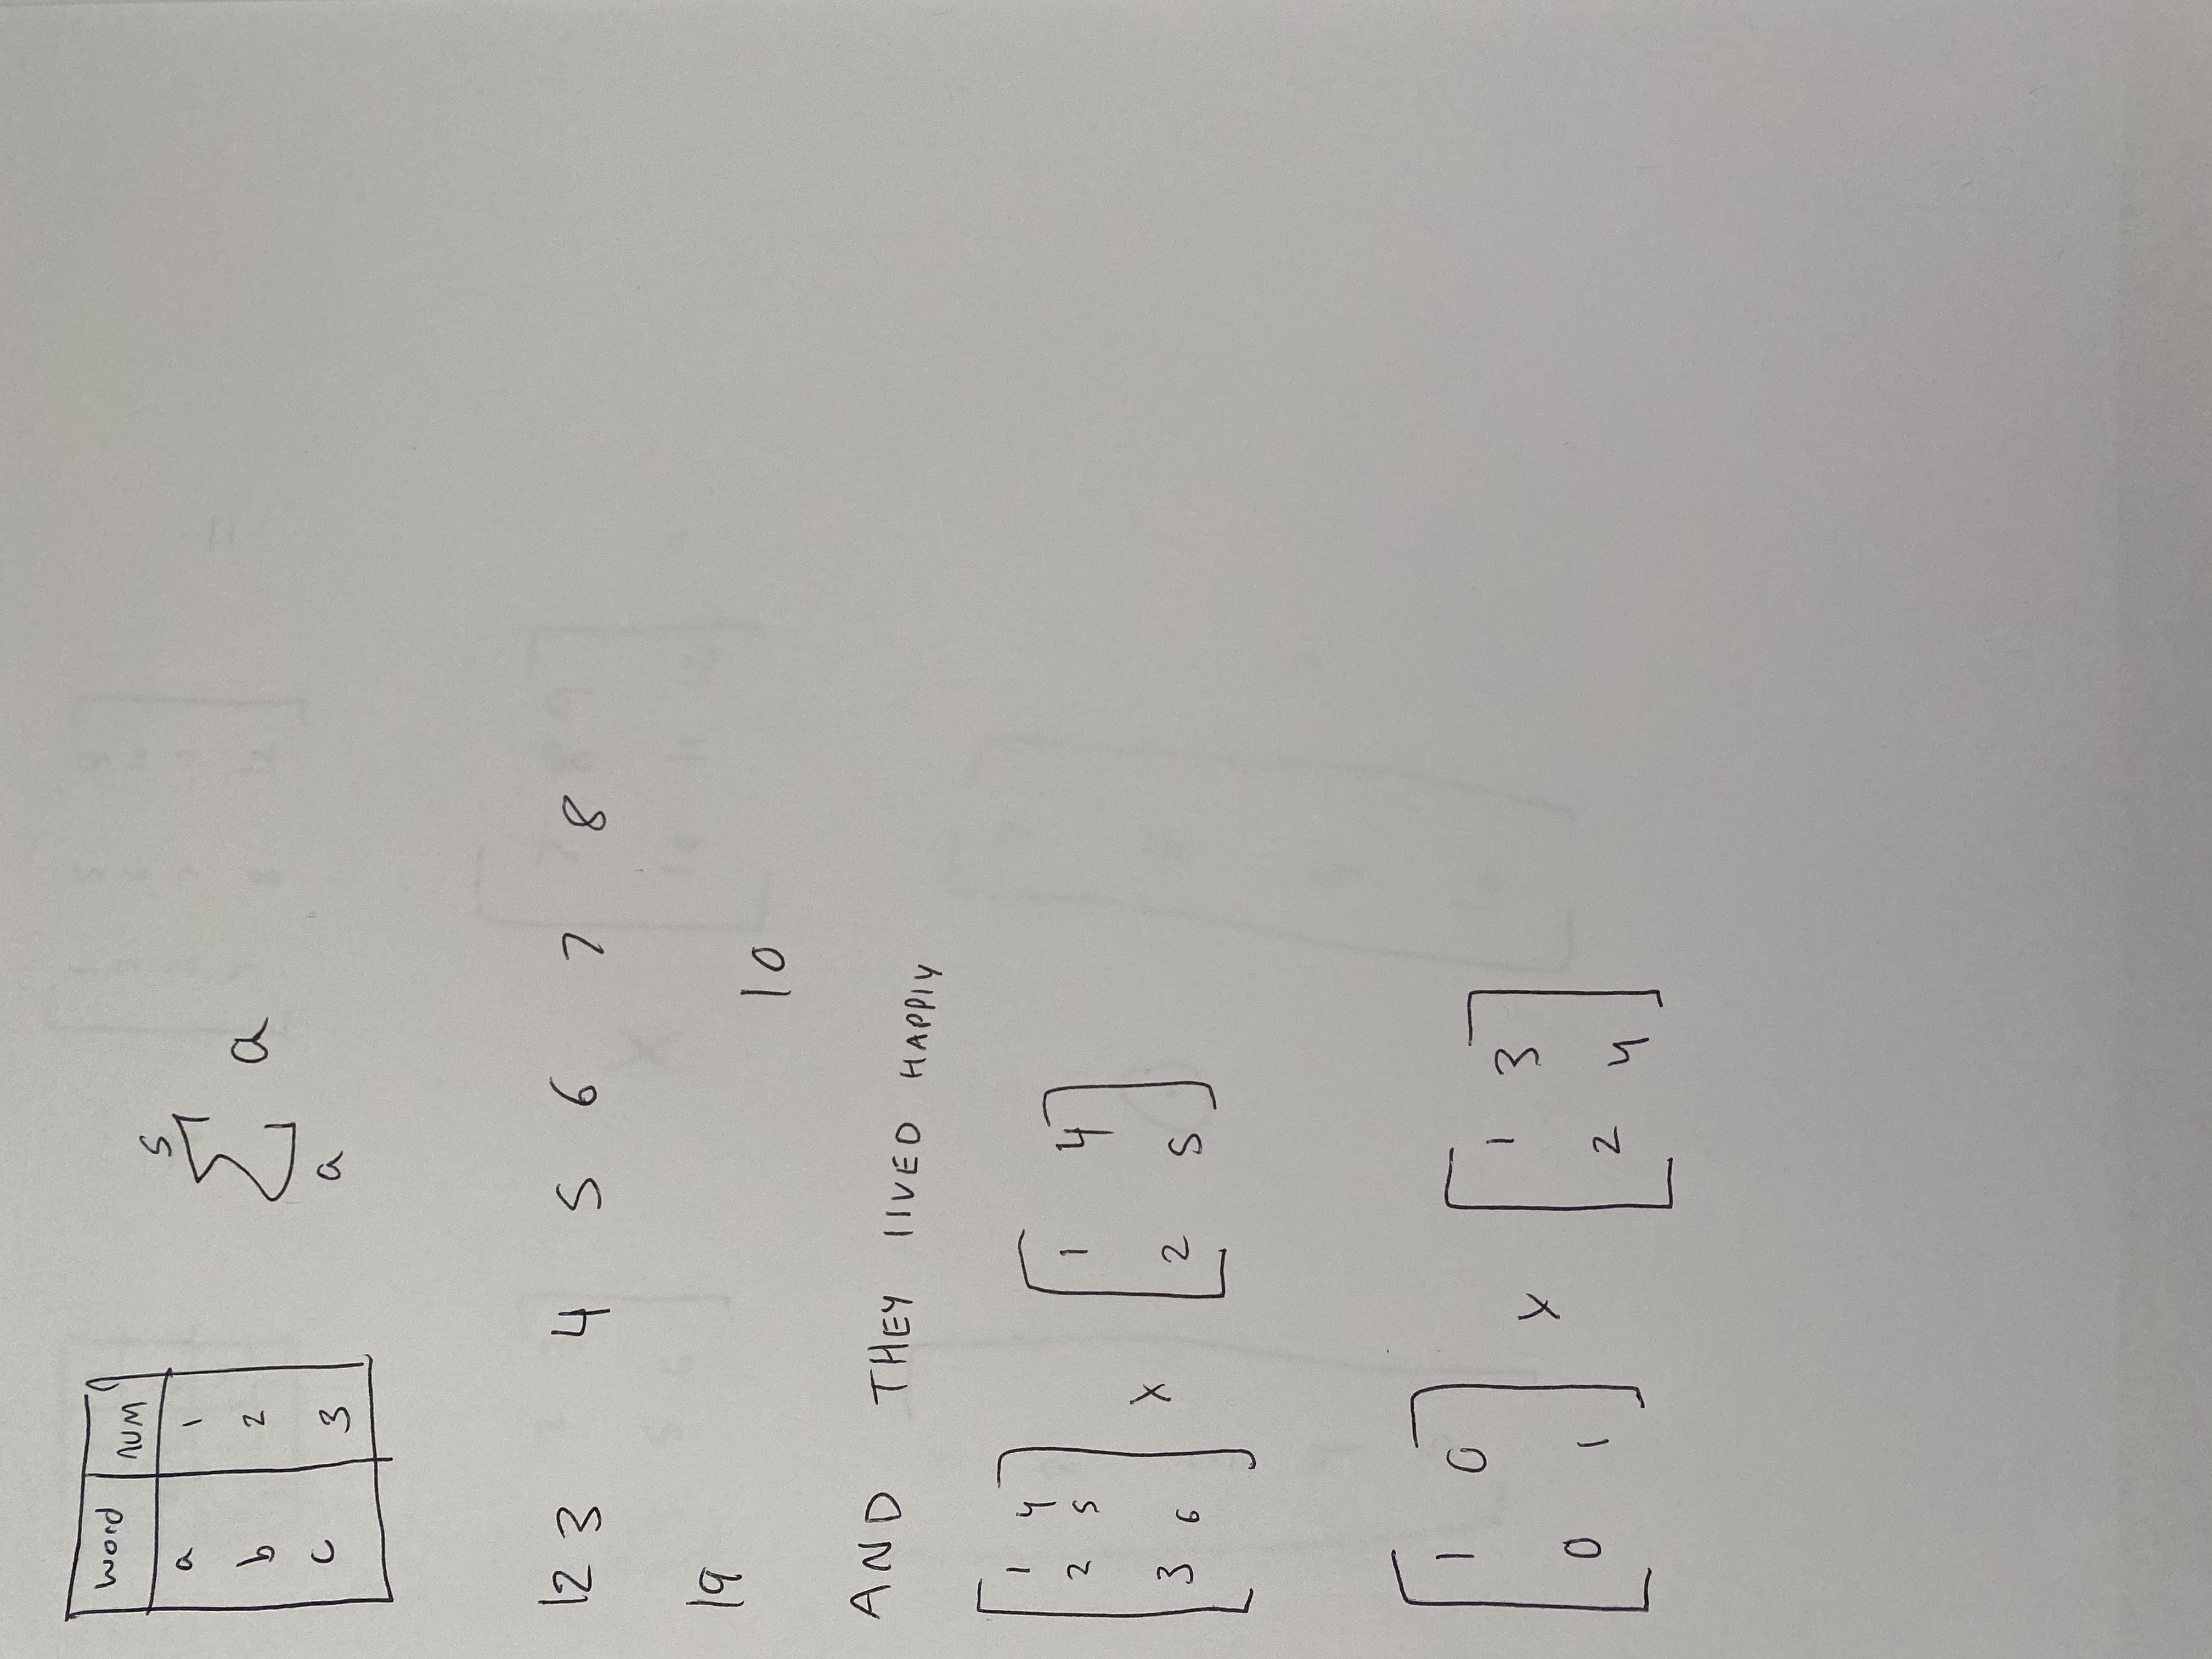 word num
a 1
b 2
c 3
5
∑ a
a
12 3 4 5 6 7 8
19
10
AND THEY lIVED HAPPlY
[1 4
2 5
3 6] x [1 4
2 5]
[1 0
0 1] x [1 3
2 4]